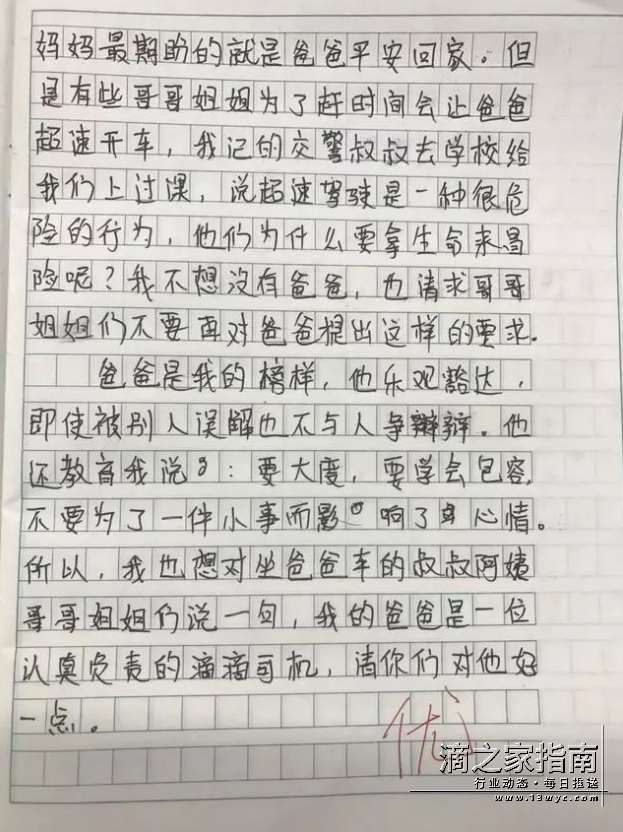 妈妈最期盼的就是爸爸平安回家。但
是有些哥哥姐姐为了赶时间会让爸爸
超速开车，我记的交警叔叔去学校给
我们上过课，说超速驾驶是一种很危
险的行为，他们为什么要拿生命来冒
险呢？我不想没有爸爸，也请求哥哥
姐姐们不要再对爸爸提出这样的要求.
爸爸是我的榜样，他乐观豁达，
即使被别人误解也不与人争辩辩.他
还教育我说：要大度，要学会包容,
不要为了一件小事而影响了心情。
所以，我也想对坐爸爸车的叔叔阿姨
哥哥姐姐们说一句，我的爸爸是一位
认真负责的滴滴司机，请你们对他好
一点。
优
滴之家指南
行业动态·每日推送
www.13wyc.com